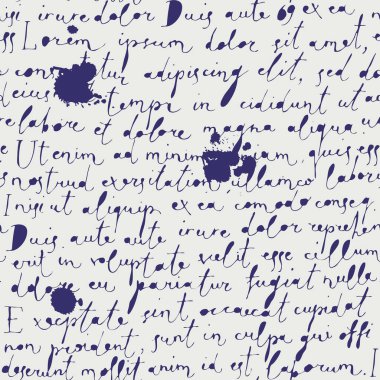 irure dolor Duis aute ex ea
Lorem ipsum dolor sit amet,
adipiscing elit, sed do
eius tempi in cididunt ut
relabore et dolore magna aliqua
Ut enim ad minim quis
nostrud exersitation ullamco
nisi ut aliquip ex ea comodo conseq
Duis aute aute irure dolor
erit in voluptate velit esse cillum
dolore eu pariatur fugiat nulla
Exceptate sint occaecat cupidat
non proident, sunt in culpa qui offi
deserunt mollit anim id est laborum.